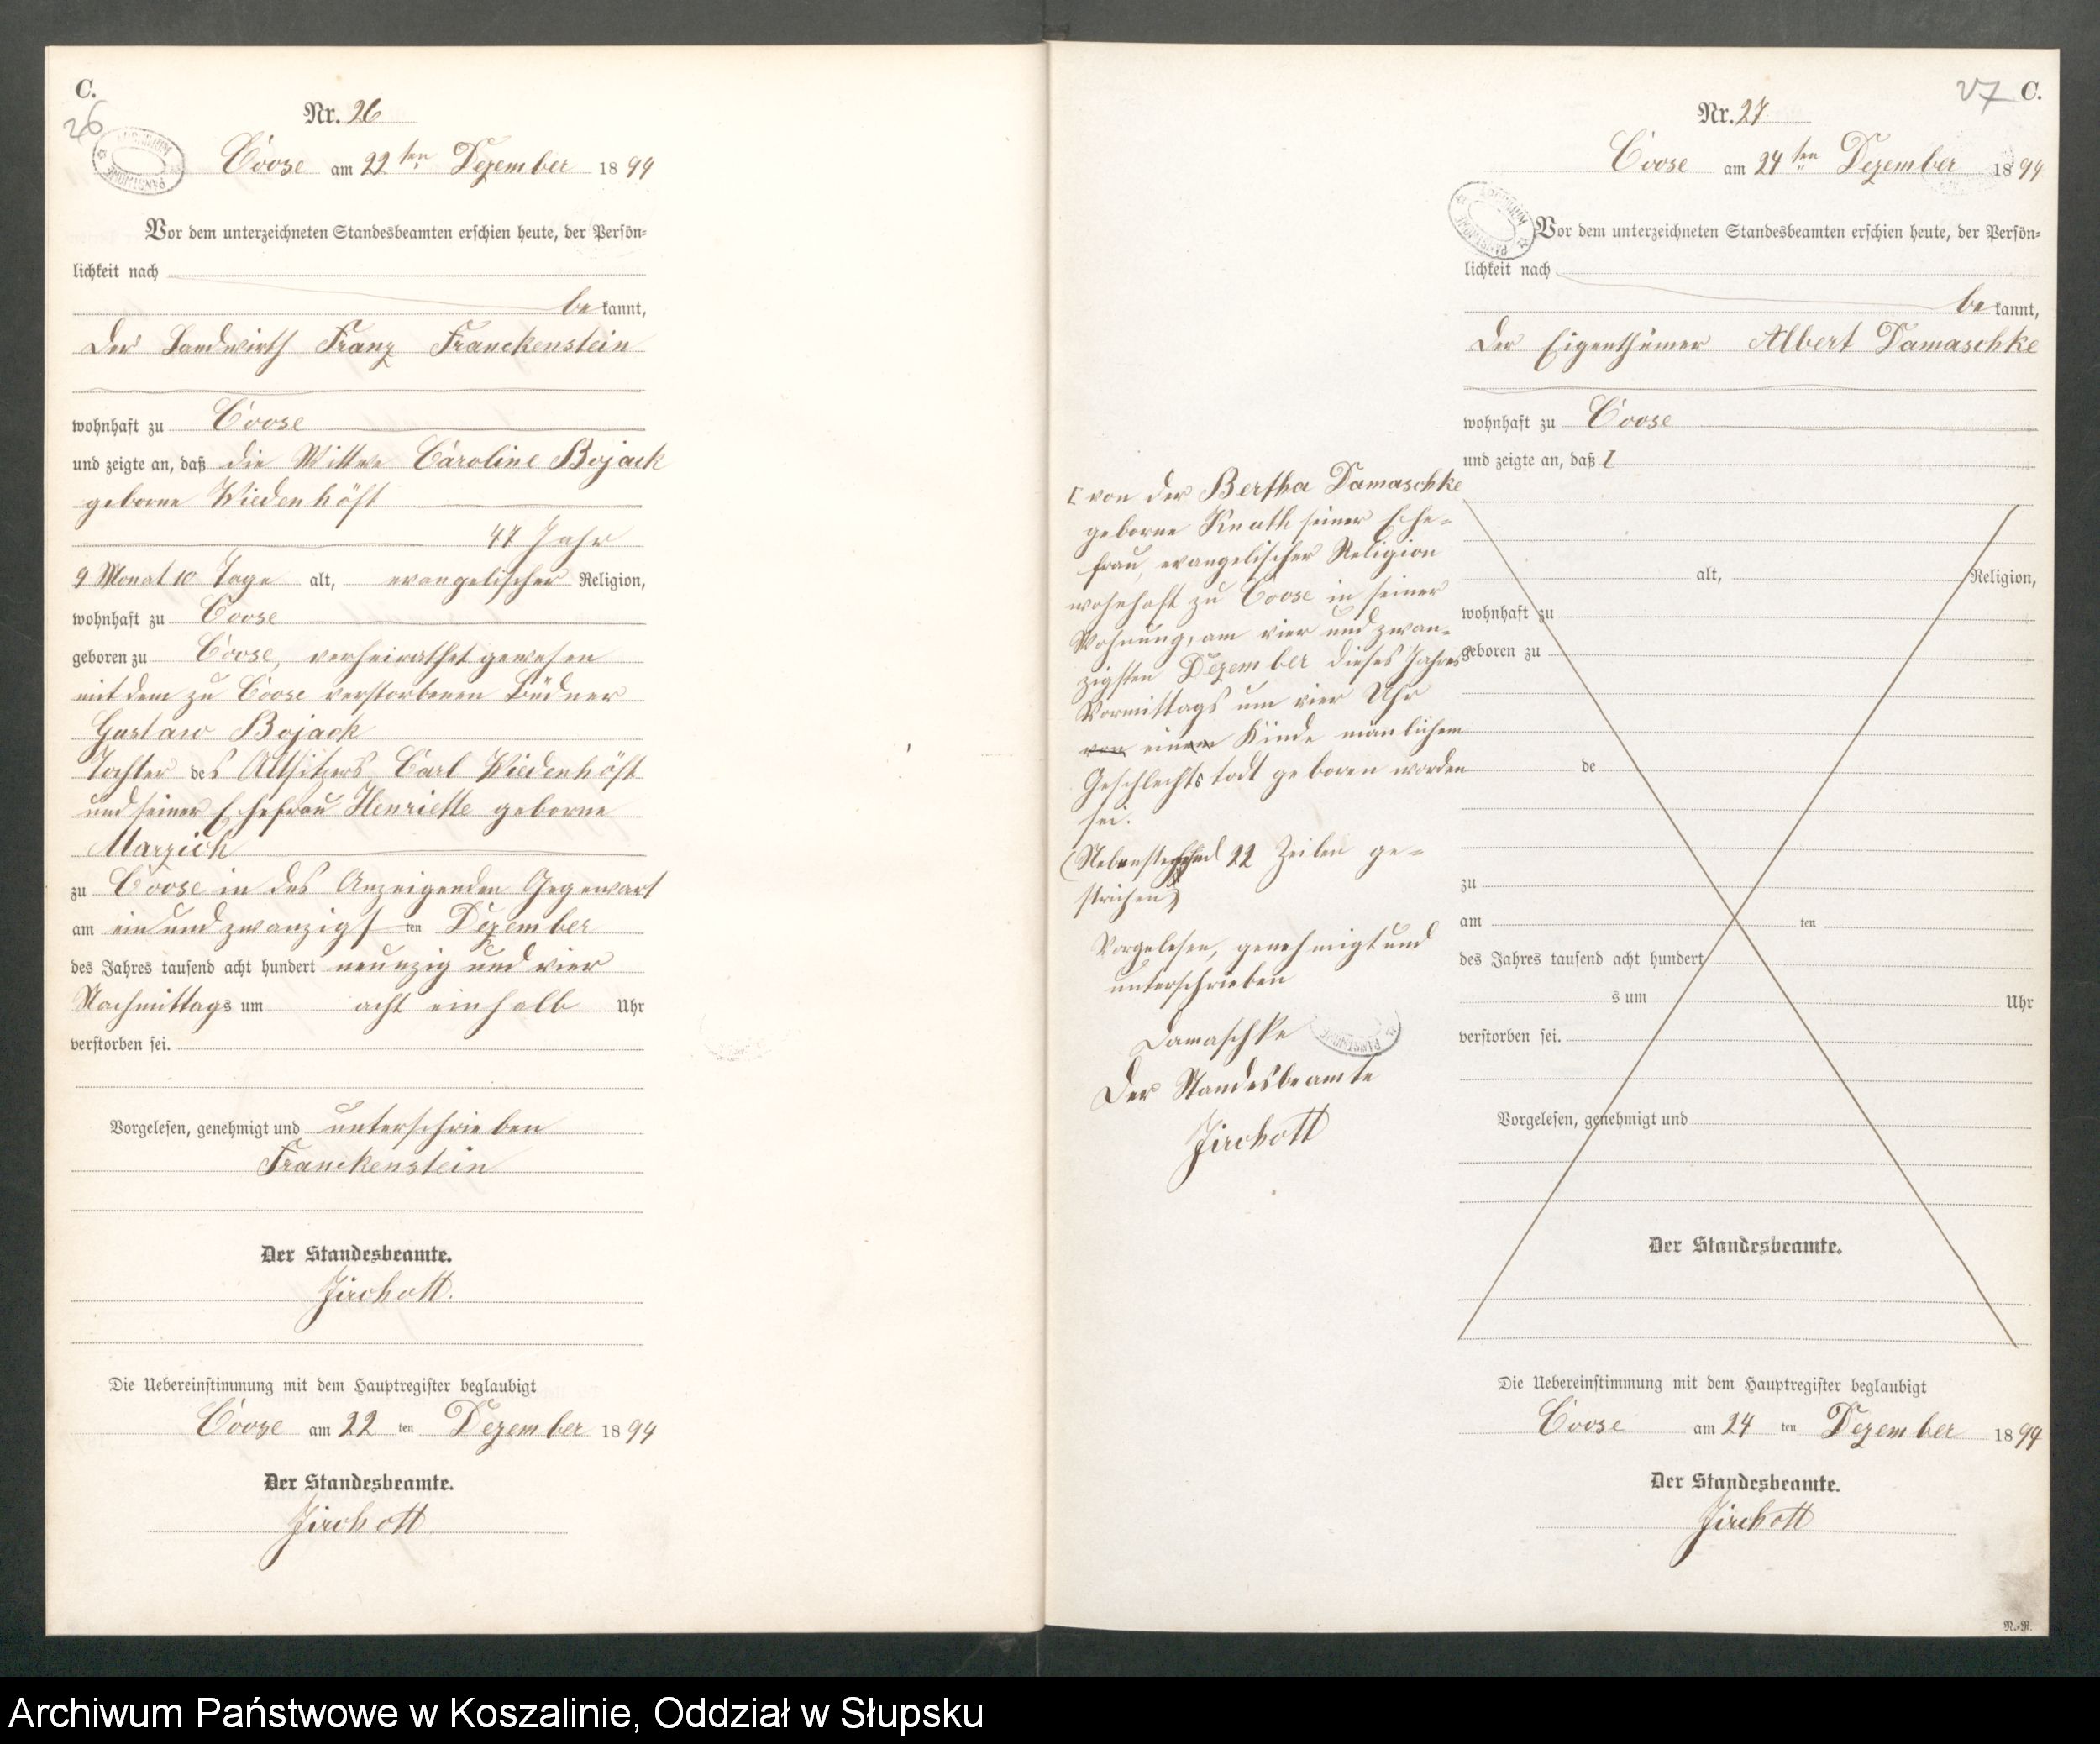 C.
26
Nr. 26
Coose am 22 ten Dezember 1894
Vor dem unterzeichneten Standesbeamten erschien heute, der Persön-
lichkeit nach
bekannt,
der Landwirth Franz Franckenstein
wohnhaft zu Coose
und zeigte an, daß die Wittwe Caroline Bojack
geborne Wiedenhöft
44 Jahr
9 Monat 10 Tage alt, evangelischer Religion,
wohnhaft zu Coose
geboren zu Coose, verheirathet gewesen
mit dem zu Coose verstorbenen Büdner
Gustaw Bojack
Tochter des Altsitzers Carl Wiedenhöft
und seiner Ehefrau Henriette geborne
Marzich
zu Coose in des Anzeigenden Gegenwart
am ein und zwanzigsten Dezember
des Jahres tausend acht hundert neunzig und vier
Nachmittags um acht einhalb Uhr
verstorben sei.
Vorgelesen, genehmigt und unterschrieben
Franckenstein
Der Standesbeamte.
Jirchott.
Die Uebereinstimmung mit dem Hauptregister beglaubigt
Coose am 22 ten Dezember 1894
Der Standesbeamte.
Jirchott
27 C.
Nr. 27
Coose am 24 ten Dezember 1894
Vor dem unterzeichneten Standesbeamten erschien heute, der Persön-
lichkeit nach
bekannt,
der Eigenthümer Albert Damaschke
wohnhaft zu Coose
und zeigte an, daß I
I von der Bertha Damaschke
geborne Knuth seiner Ehe-
frau, evangelischer Religion
wohnhaft zu Coose in seiner
Wohnung, am vier und zwan-
zigsten Dezember dieses Jahres
Vormittags um vier Uhr
von einem Kinde mänlichem
Geschlechts todt geboren worden
sei.
(Nebenstehend 22 Zeilen ge-
strichen)
Vorgelesen, genehmigt und
unterschrieben
Damaschke
Der Standesbeamte
Jirchott
alt, Religion,
wohnhaft zu
geboren zu
de
zu
am ten
des Jahres tausend acht hundert
s um Uhr
verstorben sei.
Vorgelesen, genehmigt und
Der Standesbeamte.
Die Uebereinstimmung mit dem Hauptregister beglaubigt
Coose am 24 ten Dezember 1894
Der Standesbeamte.
Jirchott
Archiwum Państwowe w Koszalinie, Oddział w Słupsku